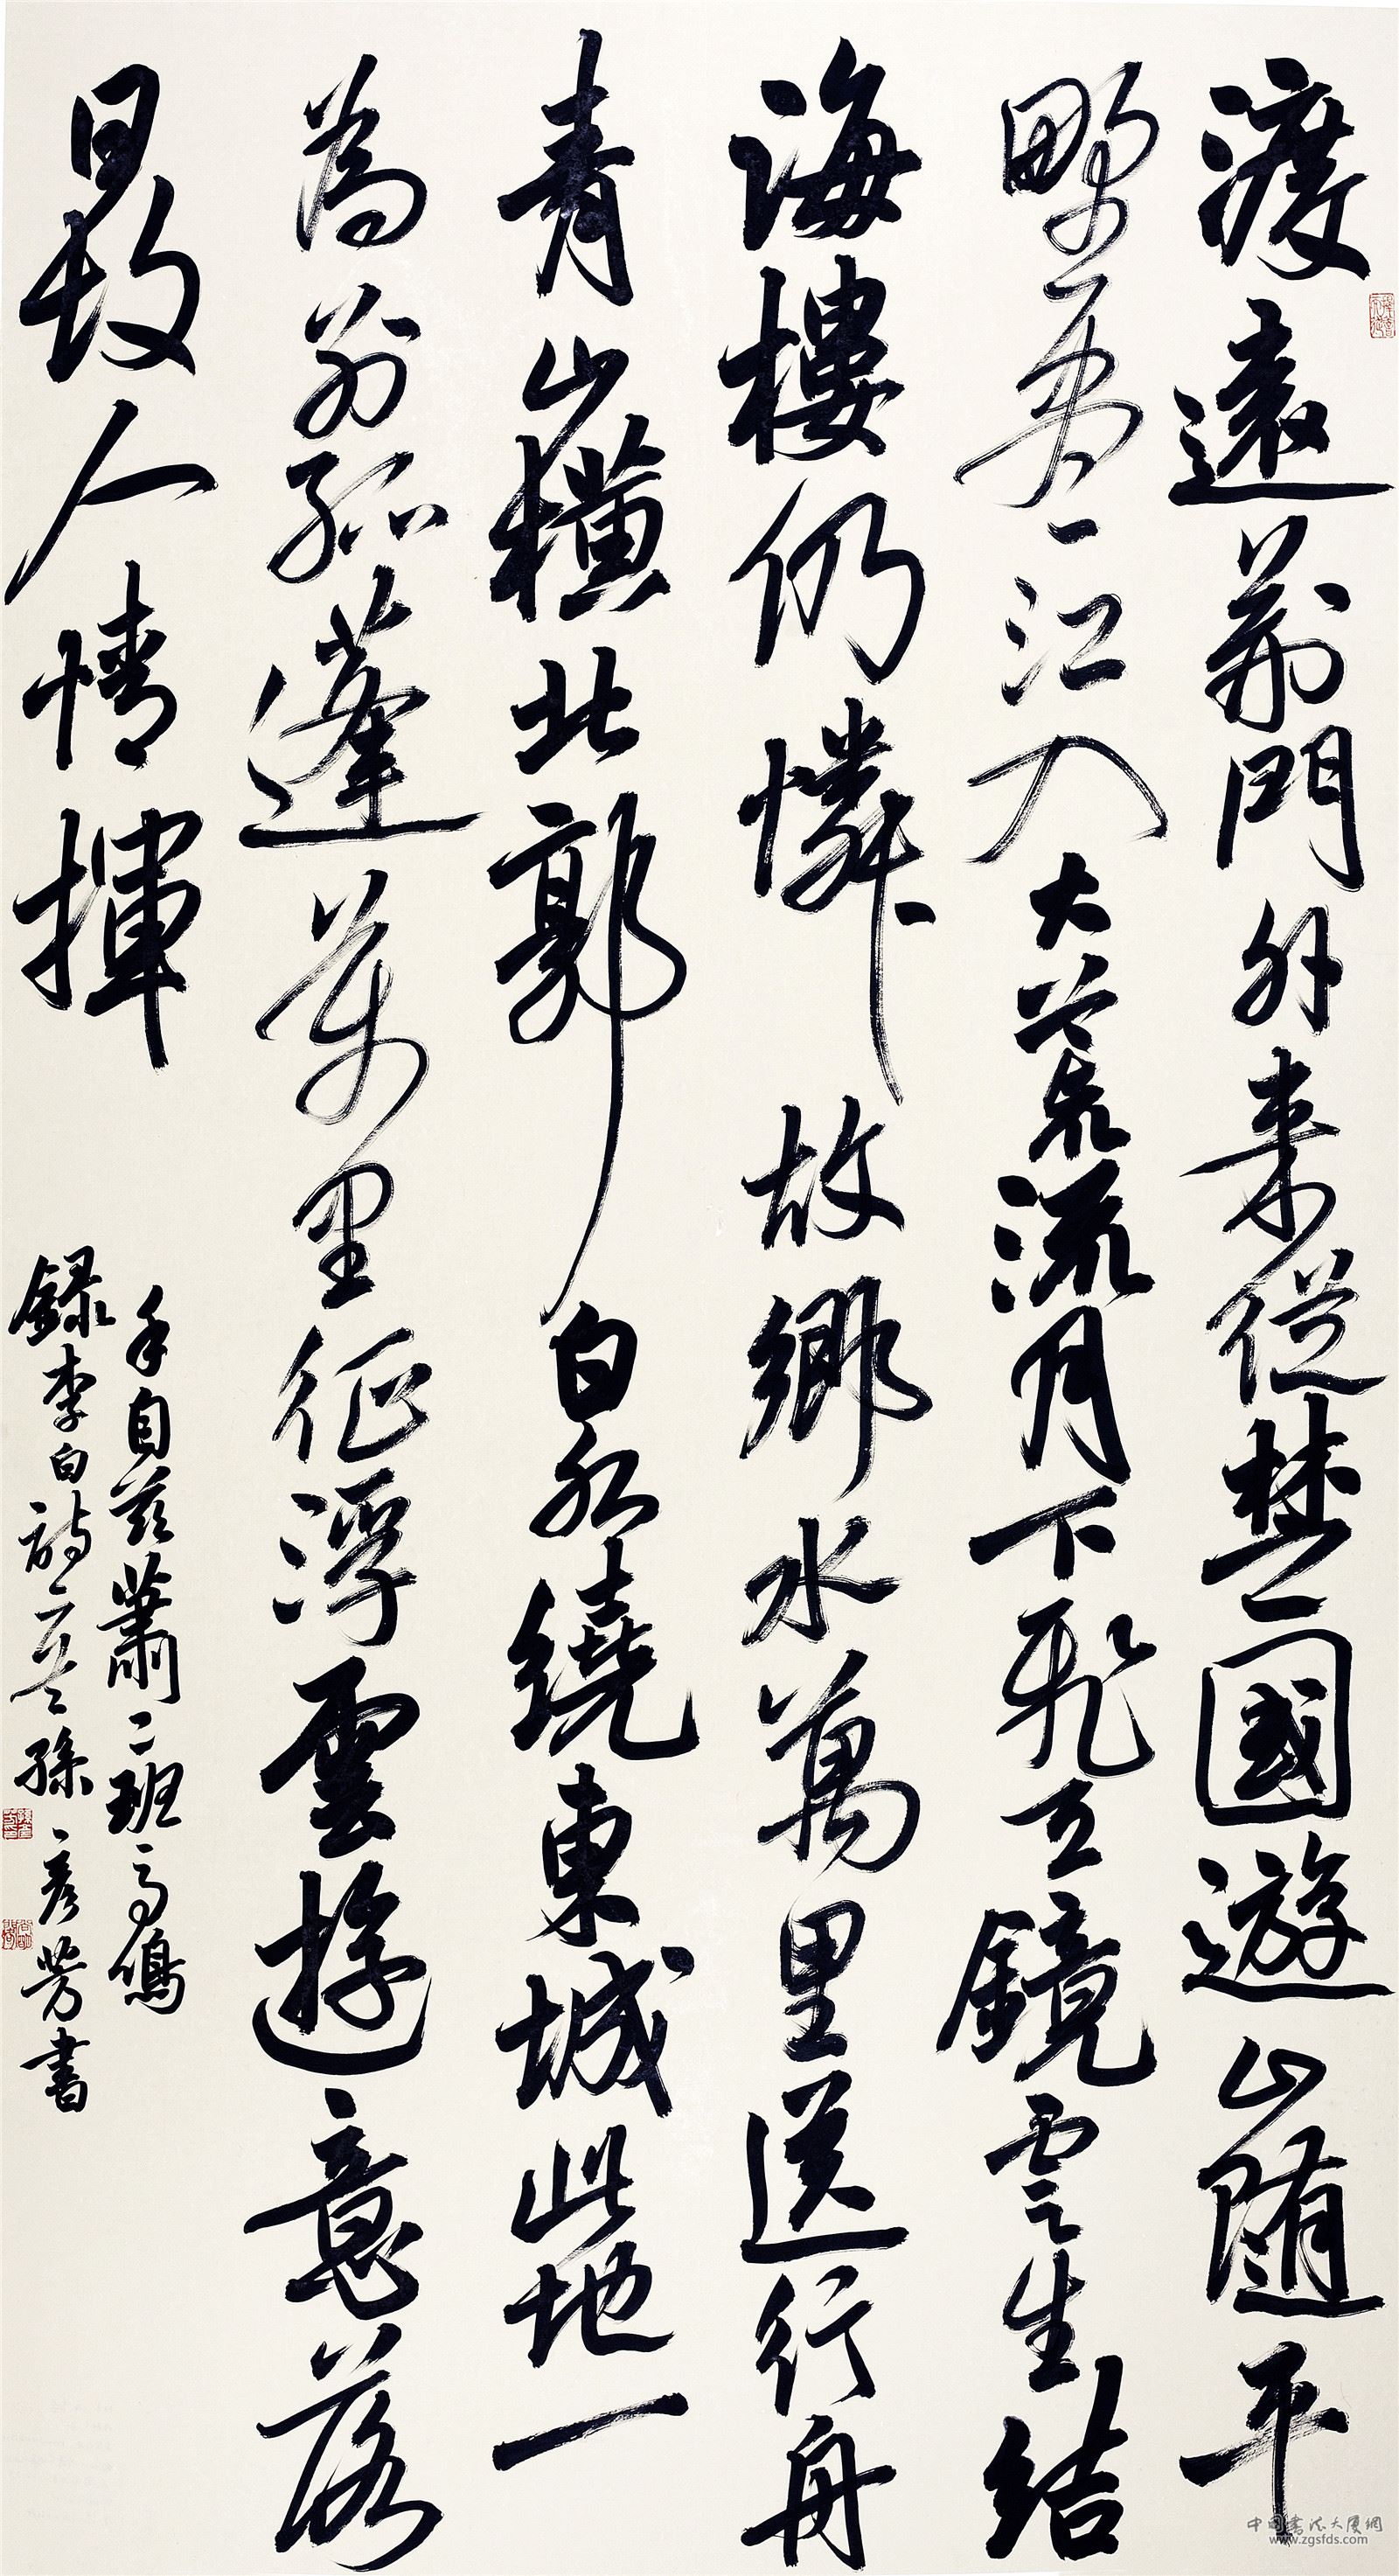 渡遠荊門外来從楚國遊山随平
野盡江入大荒流月下飛天鏡雲生結
海樓仍憐故鄉水萬里送行舟
青山橫北郭白水繞東城此地一
為別孤蓬萬里征浮雲遊意落
日故人情揮
手自兹蕭〻班馬鳴
録李白詩二首孫彦芳書
中国書法大厦網
www.zgsfds.com